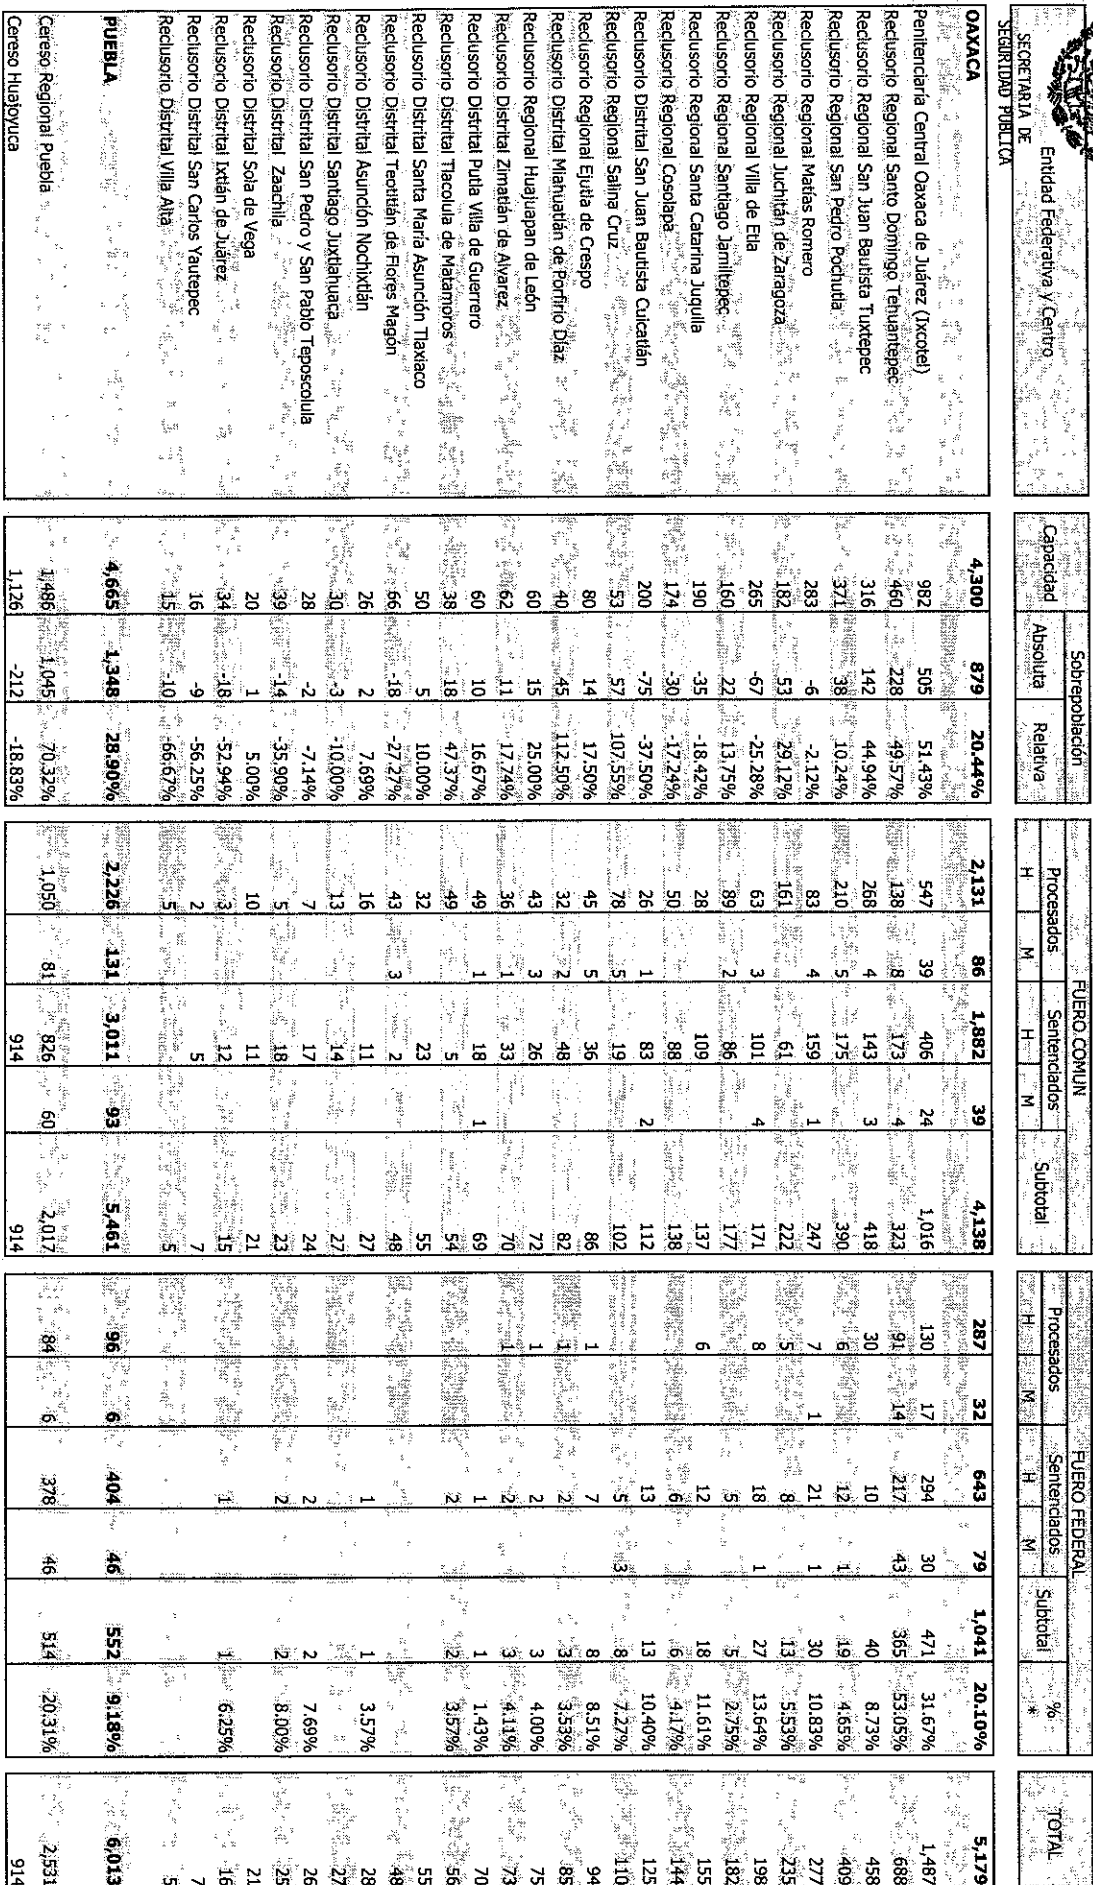 SECRETARÍA DE
SEGURIDAD PÚBLICA
Entidad Federativa y Centro Capacidad Sobrepoblación Absoluta Relativa FUERO COMUN Procesados H M Sentenciados H M Subtotal FUERO FEDERAL Procesados H M Sentenciados H M Subtotal % * TOTAL
OAXACA 4,300 879 20.44% 2,131 86 1,882 39 4,138 287 32 643 79 1,041 20.10% 5,179
Penitenciaría Central Oaxaca de Juárez (Ixcotel) 982 505 51.43% 547 39 406 24 1,016 130 17 294 30 471 31.67% 1,487
Reclusorio Regional Santo Domingo Tehuantepec 460 228 49.57% 138 8 173 4 323 91 14 217 43 365 53.05% 688
Reclusorio Regional San Juan Bautista Tuxtepec 316 142 44.94% 268 4 143 3 418 30 10 40 8.73% 458
Reclusorio Regional San Pedro Pochutla 371 38 10.24% 210 5 175 390 6 12 1 19 4.65% 409
Reclusorio Regional Matías Romero 283 -6 -2.12% 83 4 159 1 247 7 1 21 1 30 10.83% 277
Reclusorio Regional Juchitán de Zaragoza 182 53 29.12% 161 61 222 5 8 13 5.53% 235
Reclusorio Regional Villa de Etla 265 -67 -25.28% 63 3 101 4 171 8 18 1 27 13.64% 198
Reclusorio Regional Santiago Jamiltepec 160 22 13.75% 89 2 86 177 5 5 2.75% 182
Reclusorio Regional Santa Catarina Juquila 190 -35 -18.42% 28 109 137 6 12 18 11.61% 155
Reclusorio Regional Cosolapa 174 -30 -17.24% 50 88 138 6 6 4.17% 144
Reclusorio Distrital San Juan Bautista Cuicatlán 200 -75 -37.50% 26 1 83 2 112 13 13 10.40% 125
Reclusorio Regional Salina Cruz 53 57 107.55% 78 5 19 102 5 3 8 7.27% 110
Reclusorio Regional Ejutla de Crespo 80 14 17.50% 45 5 36 86 1 7 8 8.51% 94
Reclusorio Distrital Miahuatlán de Porfirio Díaz 40 45 112.50% 32 2 48 82 1 2 3 3.53% 85
Reclusorio Regional Huajuapan de León 60 15 25.00% 43 3 26 72 1 2 3 4.00% 75
Reclusorio Distrital Zimatlán de Alvarez 62 11 17.74% 36 1 33 70 1 2 3 4.11% 73
Reclusorio Distrital Putla Villa de Guerrero 60 10 16.67% 49 1 18 1 69 1 1 1.43% 70
Reclusorio Distrital Tlacolula de Matamoros 38 18 47.37% 49 5 54 2 2 3.57% 56
Reclusorio Distrital Santa María Asunción Tlaxiaco 50 5 10.00% 32 23 55 55
Reclusorio Distrital Teotitlán de Flores Magón 66 -18 -27.27% 43 3 2 48 48
Reclusorio Distrital Asunción Nochixtlán 26 2 7.69% 16 11 27 1 1 3.57% 28
Reclusorio Distrital Santiago Juxtlahuaca 30 -3 -10.00% 13 14 27 27
Reclusorio Distrital San Pedro y San Pablo Teposcolula 28 -2 -7.14% 7 17 24 2 2 7.69% 26
Reclusorio Distrital Zaachila 39 -14 -35.90% 5 18 23 2 2 8.00% 25
Reclusorio Distrital Sola de Vega 20 1 5.00% 10 11 21 21
Reclusorio Distrital Ixtlán de Juárez 34 -18 -52.94% 3 12 15 1 1 6.25% 16
Reclusorio Distrital San Carlos Yautepec 16 -9 -56.25% 2 5 7 7
Reclusorio Distrital Villa Alta 15 -10 -66.67% 5 5 5
PUEBLA 4,665 1,348 28.90% 2,226 131 3,011 93 5,461 96 6 404 46 552 9.18% 6,013
Cereso Regional Puebla 1,486 1,045 70.32% 1,050 81 826 60 2,017 84 6 378 46 514 20.31% 2,531
Cereso Huajoyuca 1,126 -212 -18.83% 914 914 914